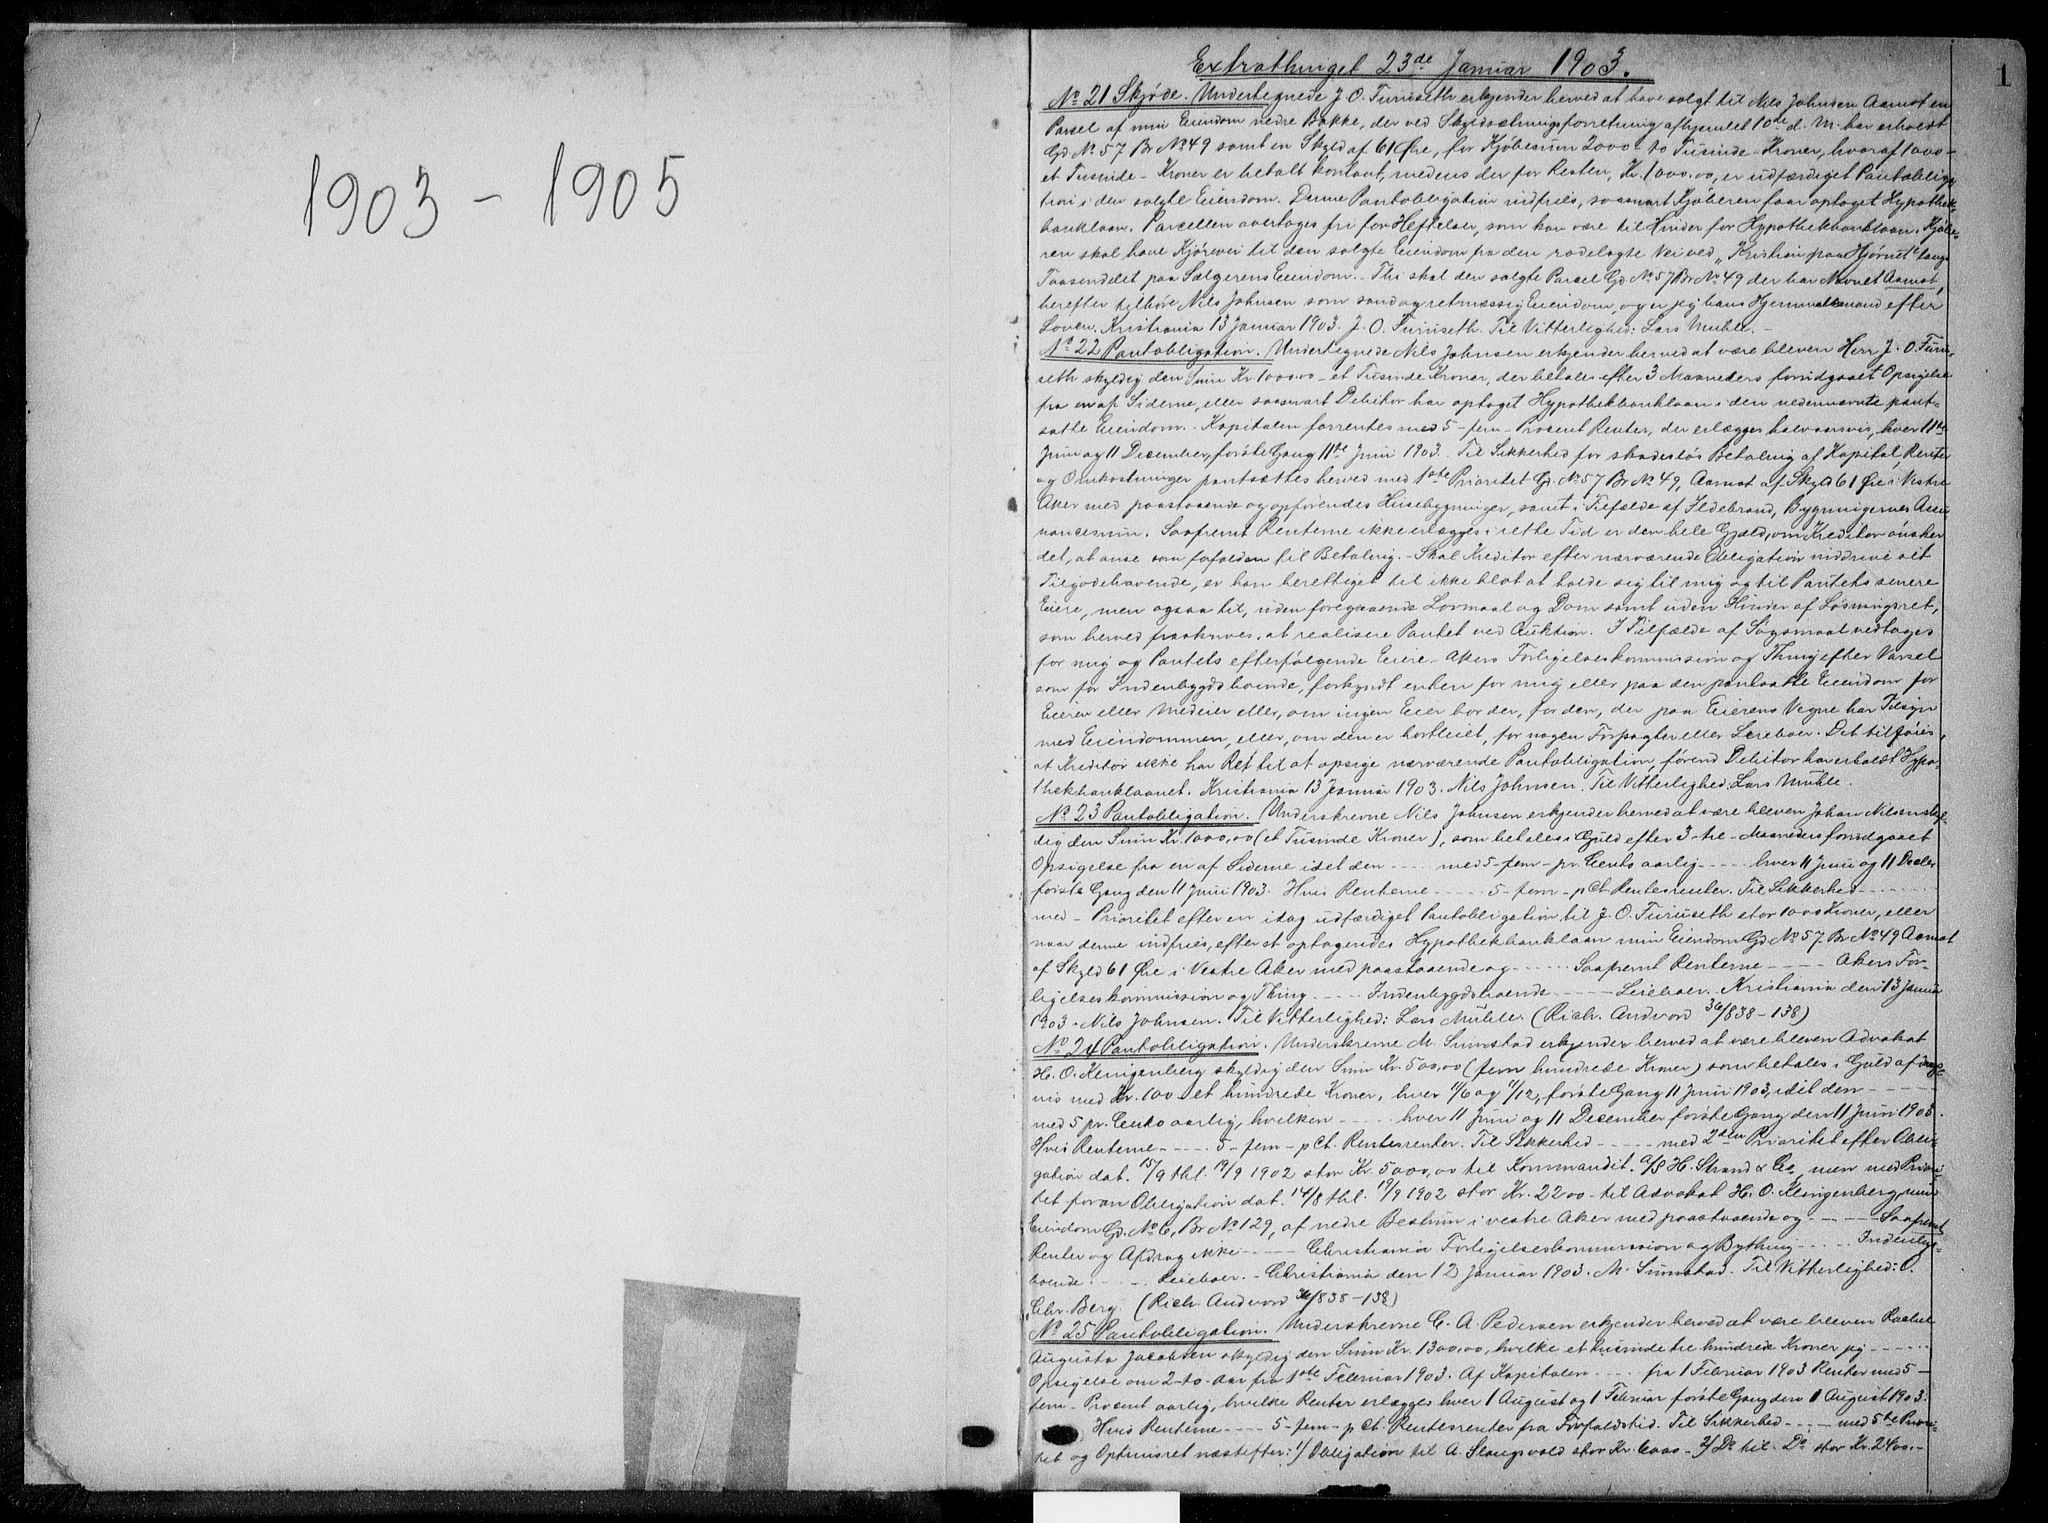 1903 - 1905
1
Extrathinget 23de Januar 1903.
No 21 Skjøde. Undertegnede J. O. Furuseth erkjender herved at have solgt til Nils Johnsen Aamot en
Parsel af min Eiendom nedre Bakke, der ved Skyldsætningsforretning afhjemlet 10de d. M. har erholdt
Gd No 57 Br No 49 samt en Skyld af 61 Øre, for Kjøbesum 2000 - to Tusinde - Kroner, hvoraf 1000 -
et Tusinde - Kroner er betalt kontant, medens der for Resten, Kr. 1000.00, er udfærdiget Pantobliga-
tion i den solgte Eiendom. Denne Pantobligation indfries, saasnart Kjøberen faar optaget Hypothek-
banklaan. Parcellen overtages fri for Heftelser, som kan være til Hinder for Hypothekbanklaan. Kjøbe-
ren skal have Kjørevei til den solgte Eiendom fra den rodelagte Vei ved "Kristian paa Hjørnet" langs
Taasendelet paa Sælgerens Eiendom. - Thi skal den solgte Parsel Gd No 57 Br No 49 der har Navnet Aamot,
herefter tilhøre Nils Johnsen som sand og retmæssig Eiendom, og er jeg hans Hjemmelsmand efter
Loven. Kristiania 13 Januar 1903. J. O. Furuseth. Til Vitterlighed: Lars Muhle. -
No 22 Pantobligation. Undertegnede Nils Johnsen erkjender herved at være bleven Herr J. O. Furu-
seth skyldig den Sum Kr. 1000.00 - et Tusinde Kroner, der betales efter 3 Maaneders forudgaaet Opsigelse
fra en af Siderne, eller saasnart Debitor har optaget Hypothekbanklaan i den nedennævnte pant-
satte Eiendom. - Kapitalen forrentes med 5 - fem - Procent Renter, der erlægges halvaarsvis, hver 11te
Juni og 11 December, første Gang 11te Juni 1903. Til Sikkerhed for skadesløs Betaling af Kapital, Renter
og Omkostninger pantsættes herved med 1ste Prioritet Gd. No 57 Br No 49, Aamot af Skyld 61 Øre i Vestre
Aker med paastaaende og opførendes Husebygninger, samt i Tilfælde af Ildebrand, Bygningernes Assu-
rancesum. Saafremt Renterne ikke erlægges i rette Tid er den hele Gjæld, om Kreditor ønsker
det, at anse som forfalden til Betaling. - Skal Kreditor efter nærværende Obligation inddrive sit
Tilgodehavende, er han berettiget til ikke blot at holde sig til mig og til Pantets senere
Eiere, men ogsaa til, uden foregaaende Lovmaal og Dom samt uden Hinder af Løsningsret,
som herved fraskrives, at realisere Pantet ved Auktion. I Tilfælde af Søgsmaal vedtages
for mig og Pantets efterfølgende Eiere - Akers Forligelseskommission og Thing efter Varsel
som for Indenbygdsboende, forkyndt enten for mig eller paa den pantsatte Eiendom for
Eieren eller Medeier eller, om ingen Eier bor der, for den, der paa Eierens Vegne har Tilsyn
med Eiendommen, eller, om den er bortleiet, for nogen Forpagter eller Leieboer. Det tilføies,
at Kreditor ikke har Ret til at opsige nærværende Pantobligation, førend Debitor har erholdt Hypo-
thekbanklaanet. Kristiania 13 Januar 1903. Nils Johnsen. Til Vitterlighed: Lars Muhle.
No 23 Pantobligation. Underskrevne Nils Johnsen erkjender herved at være bleven Johan Nilsen skyl-
dig den Sum Kr. 1000,00 (et Tusinde Kroner), som betales i Guld efter 3 - tre - Maaneders forudgaaet
Opsigelse fra en af Siderne idet den ---- med 5 - fem - pr. Cents aarlig ---- hver 11 Juni og 11 Decbr.
første Gang den 11 Juni 1903. Hvis Renterne ---- 5 - fem - pCt. Rentesrenter. Til Sikkerhed ----
med - Prioritet efter en idag udfærdiget Pantobligation til J. O. Furuseth stor 1000 Kroner, eller
naar denne indfries, efter et optagendes Hypothekbanklaan min Eiendom Gd No 57 Br No 49 Aamot
af Skyld 61 Øre i Vestre Aker med paastaaende og ---- Saafremt Renterne ---- Akers For-
ligelseskommission og Thing ---- Indenbygdsboende ---- Leieboer. Kristiania den 13 Januar
1903. Nils Johnsen. Til Vitterlighed: Lars Muhle. (Rich. Andvord 36/838 - 138)
No 24 Pantobligation. Underskrevne M. Sunnstad erkjender herved at være bleven Advokat
H. O. Klingenberg skyldig den Sum Kr. 500,00 (fem hundrede Kroner) som betales i Guld afdrags-
vis med Kr. 100 - et hundrede Kroner, hver 11/6 og 11/12, første Gang 11 Juni 1903, idet den ----
med 5 pr. Cents aarlig, hvilken ---- hver 11 Juni og 11 December første Gang den 11 Juni 1903.
Hvis Renterne ---- 5 - fem - pCt. Rentesrenter. Til Sikkerhed ---- med 2den Prioritet efter Obli-
gation dat. 15/9 thl. 19/9 1902 stor Kr. 5000,00 til Kommandit. A/S H. Strand & Co, men med Priori-
tet foran Obligation dat. 14/8 thl. 19/9 1902 stor Kr. 2200 - til Advokat H. O. Klingenberg, min
Eiendom Gd. No 6, Br No 129, af nedre Bestum i vestre Aker med paastaaende og ---- Saafremt
Renter og Afdrag ikke ---- Christiania Forligelseskommission og Bything ---- Indenbys-
boende ---- Leieboer. - Christiania den 12 Januar 1903. M. Sunnstad. Til Vitterlighed: O.
Chr. Berg. (Rich. Andvord 36/838 - 138)
No 25 Pantobligation. Underskrevne C. A. Pedersen erkjender herved at være bleven Rachel
Augusta Jacobsen skyldig den Sum Kr. 1300,00, hvilke et tusinde tre hundrede Kroner jeg ----
Opsigelse om 2 - to - Aar fra 1ste Februar 1903. Af Kapitalen ---- fra 1 Februar 1903 Renter med 5 -
fem - Procent aarlig, hvilke Renter erlægges hver 1 August og 1 Februar første Gang den 1 August 1903.
Hvis Renterne ---- 5 - fem - pCt. Rentesrenter fra Forfaldstid. Til Sikkerhed ---- med 5te Priori-
tet og Optrinsret næstefter: 1/ Obligation til A. Slangsvold stor Kr. 6000 - 2/ Do til Do stor Kr. 2400. -